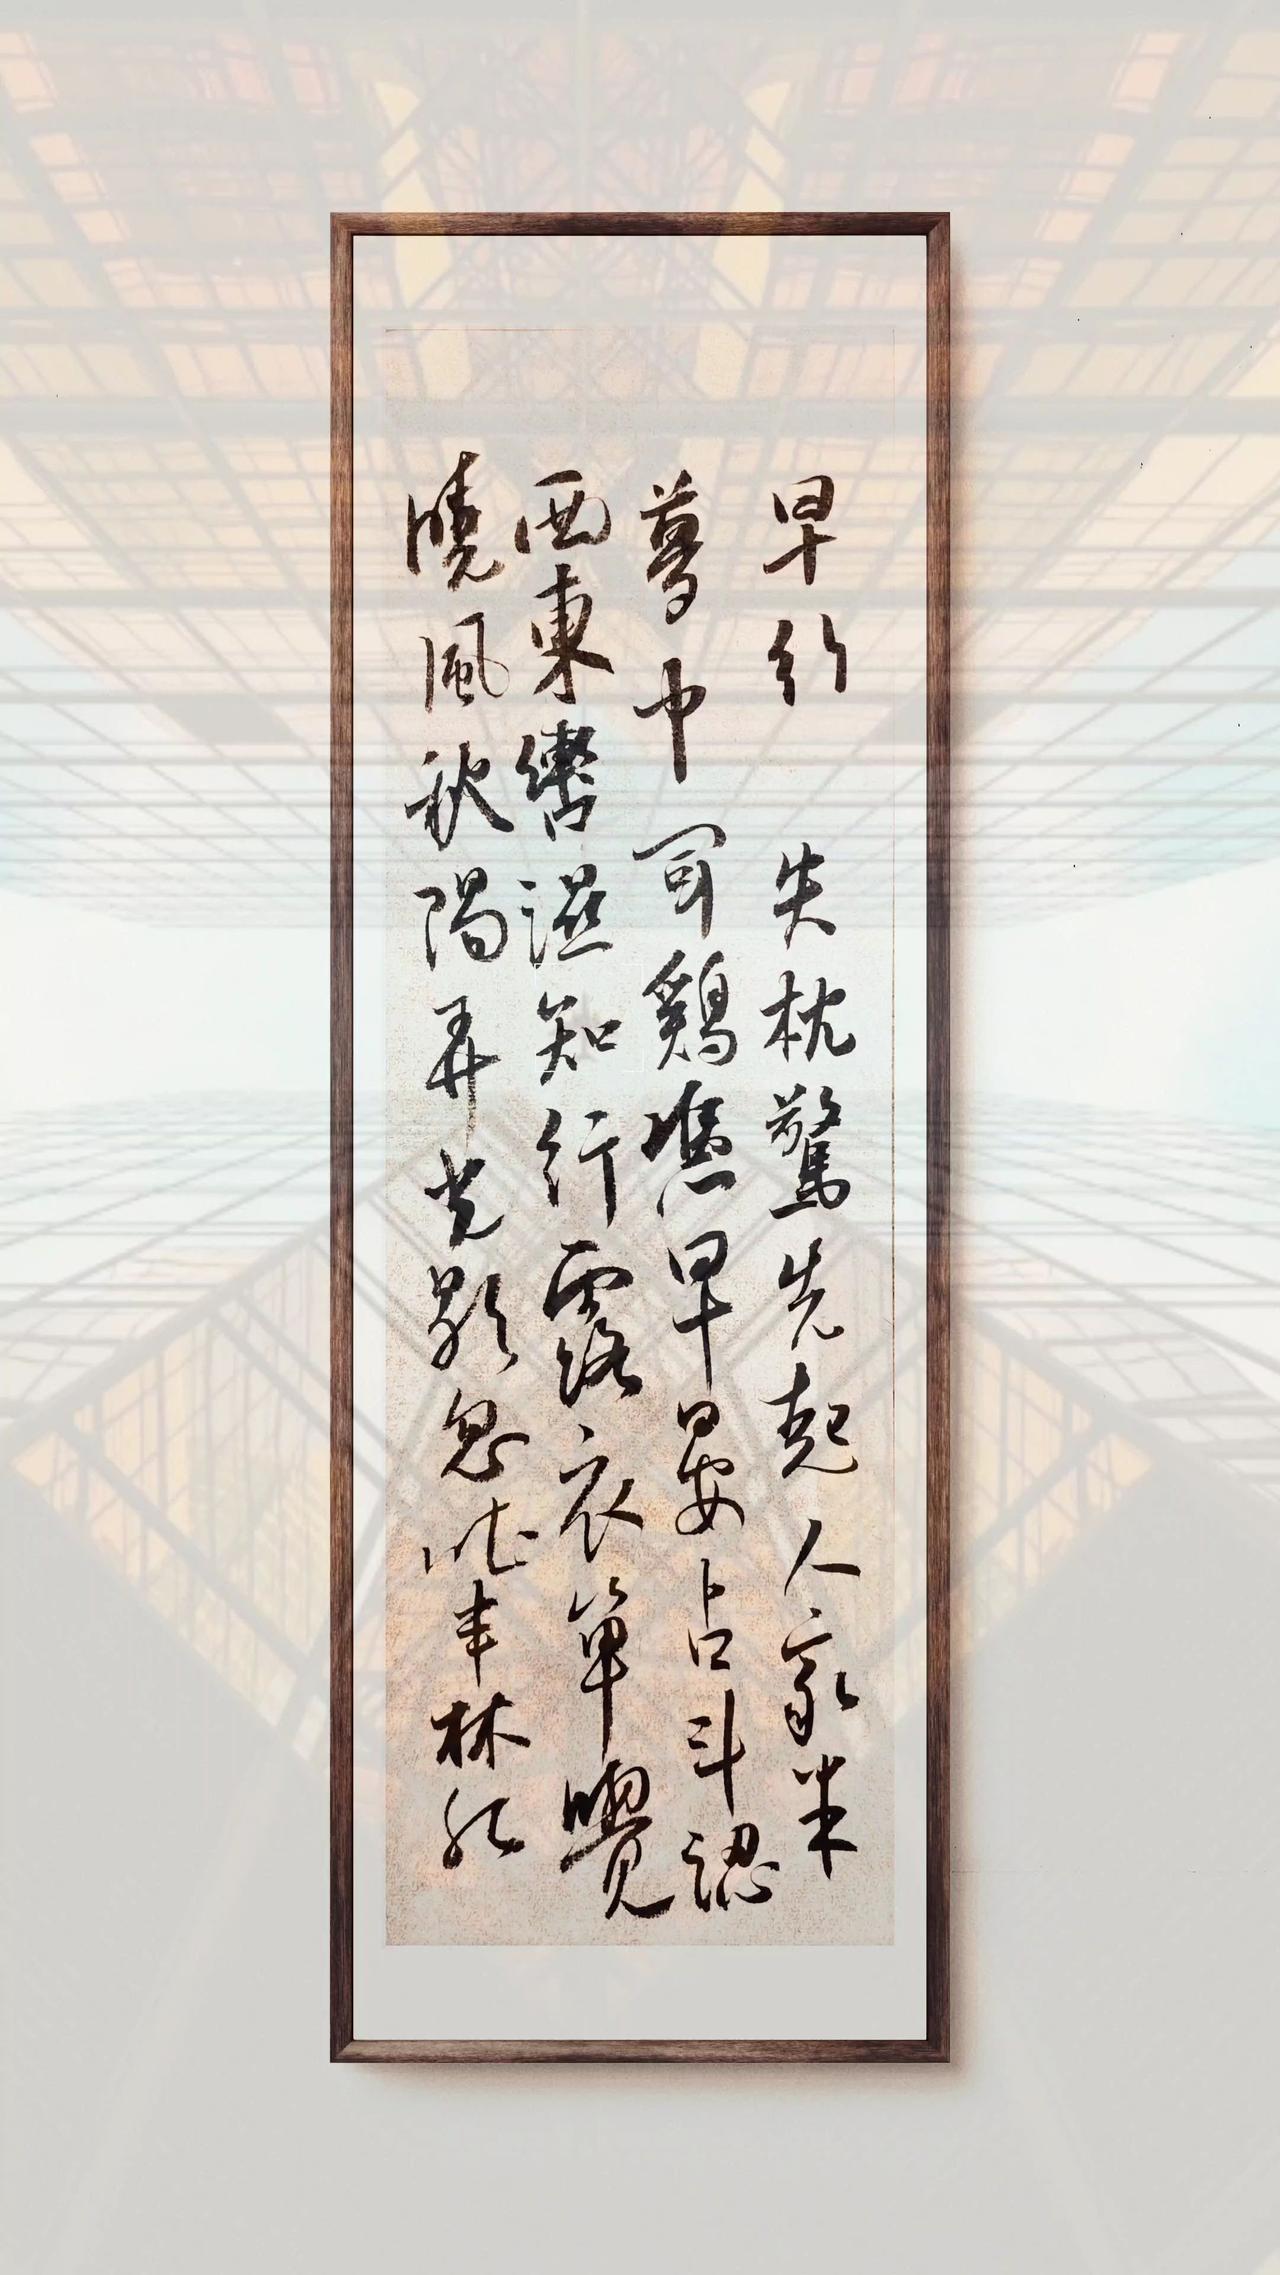 早行 失枕驚先起人家半
夢中聞鷄憑早晏占斗認
西東轡濕知行露衣單覺
曉風秋陽弄光影忽吐半林紅